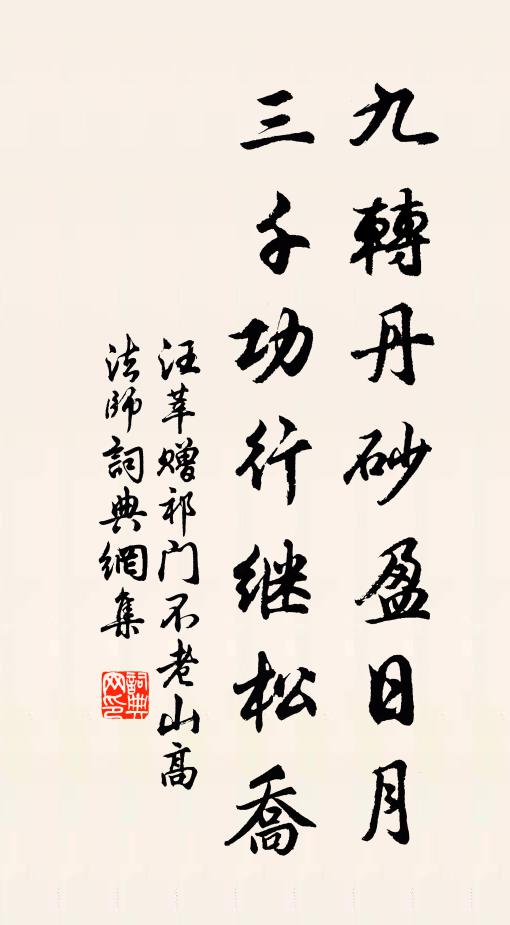 九轉丹砂盈日月
三千功行继松喬
汪莘赠祁门不老山高
法師詞典網集
詞典网印